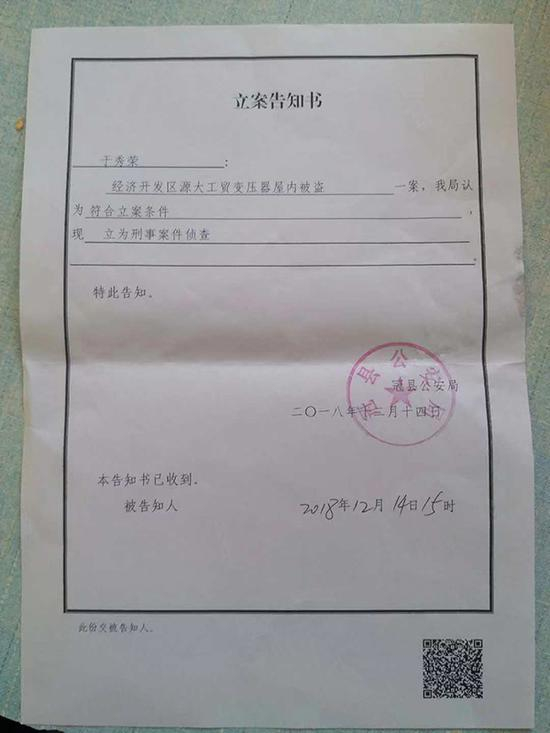 立案告知书
于秀荣：
经济开发区源大工贸变压器屋内被盗一案，我局认
为符合立案条件，
现立为刑事案件侦查
。
特此告知。
冠县公安局
冠县公安局
二〇一八年十二月十四日
本告知书已收到。
被告知人
2018年12月14日15时
此份交被告知人。